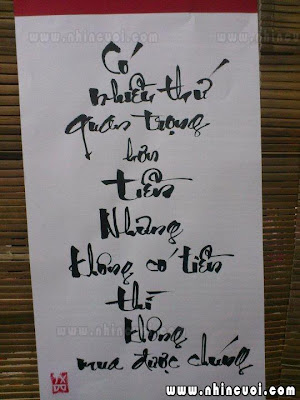 www.nhincuoi.com
Có
nhiều thứ
quan trọng
hơn
tiền
Nhưng
không có tiền
thì
không
mua được chúng
www.nhincuoi.com